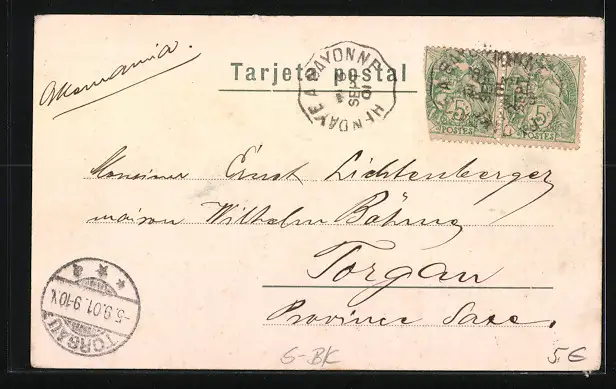 Alemania.
Tarjeta postal
HENDAYE A BAYONNE
SEPT
01
5c
5c
POSTES
POSTES
Monsieur Ernst Lichtenberger
maison Wilhelm Böhme
Torgau
Province Saxe.
TORGAU
-5.9.01.9-10V.
a
6-BK
5.€